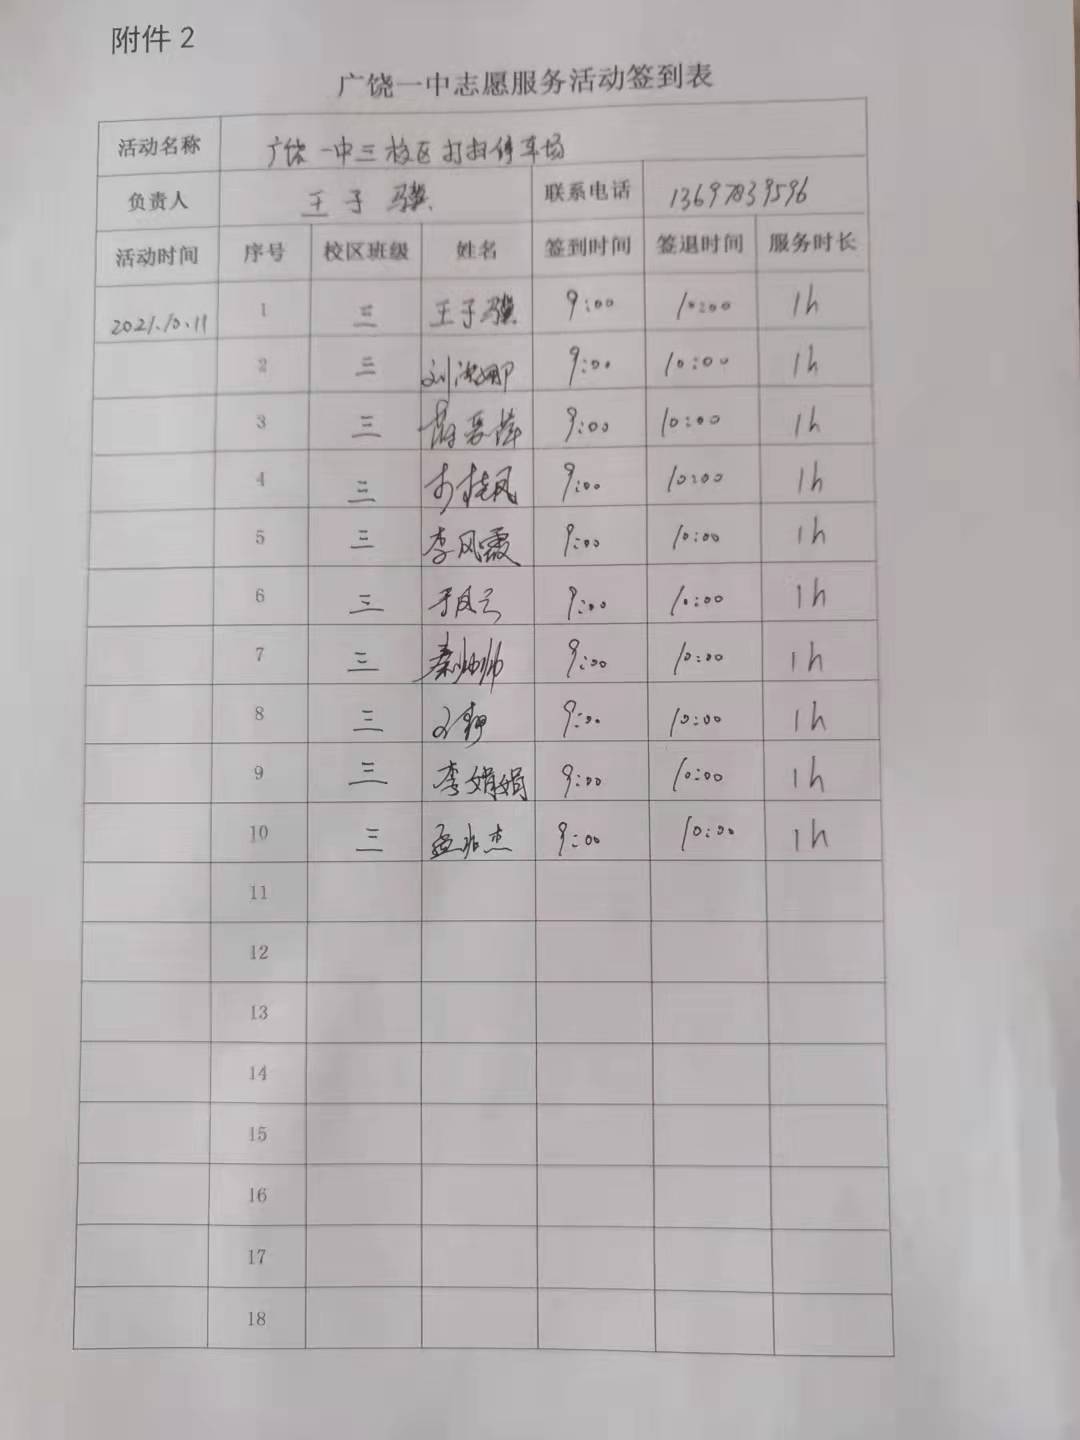 附件2
广饶一中志愿服务活动签到表
活动名称 广饶一中三校区打扫停车场
负责人 王子骥 联系电话 13697839596
活动时间 序号 校区班级 姓名 签到时间 签退时间 服务时长
2021.10.11 1 三 王子骥 9:00 10:00 1h
2 三 9:00 10:00 1h
3 三 9:00 10:00 1h
4 三 9:00 10:00 1h
5 三 李风霞 9:00 10:00 1h
6 三 于风云 9:00 10:00 1h
7 三 9:00 10:00 1h
8 三 9:00 10:00 1h
9 三 李娟娟 9:00 10:00 1h
10 三 9:00 10:00 1h
11
12
13
14
15
16
17
18